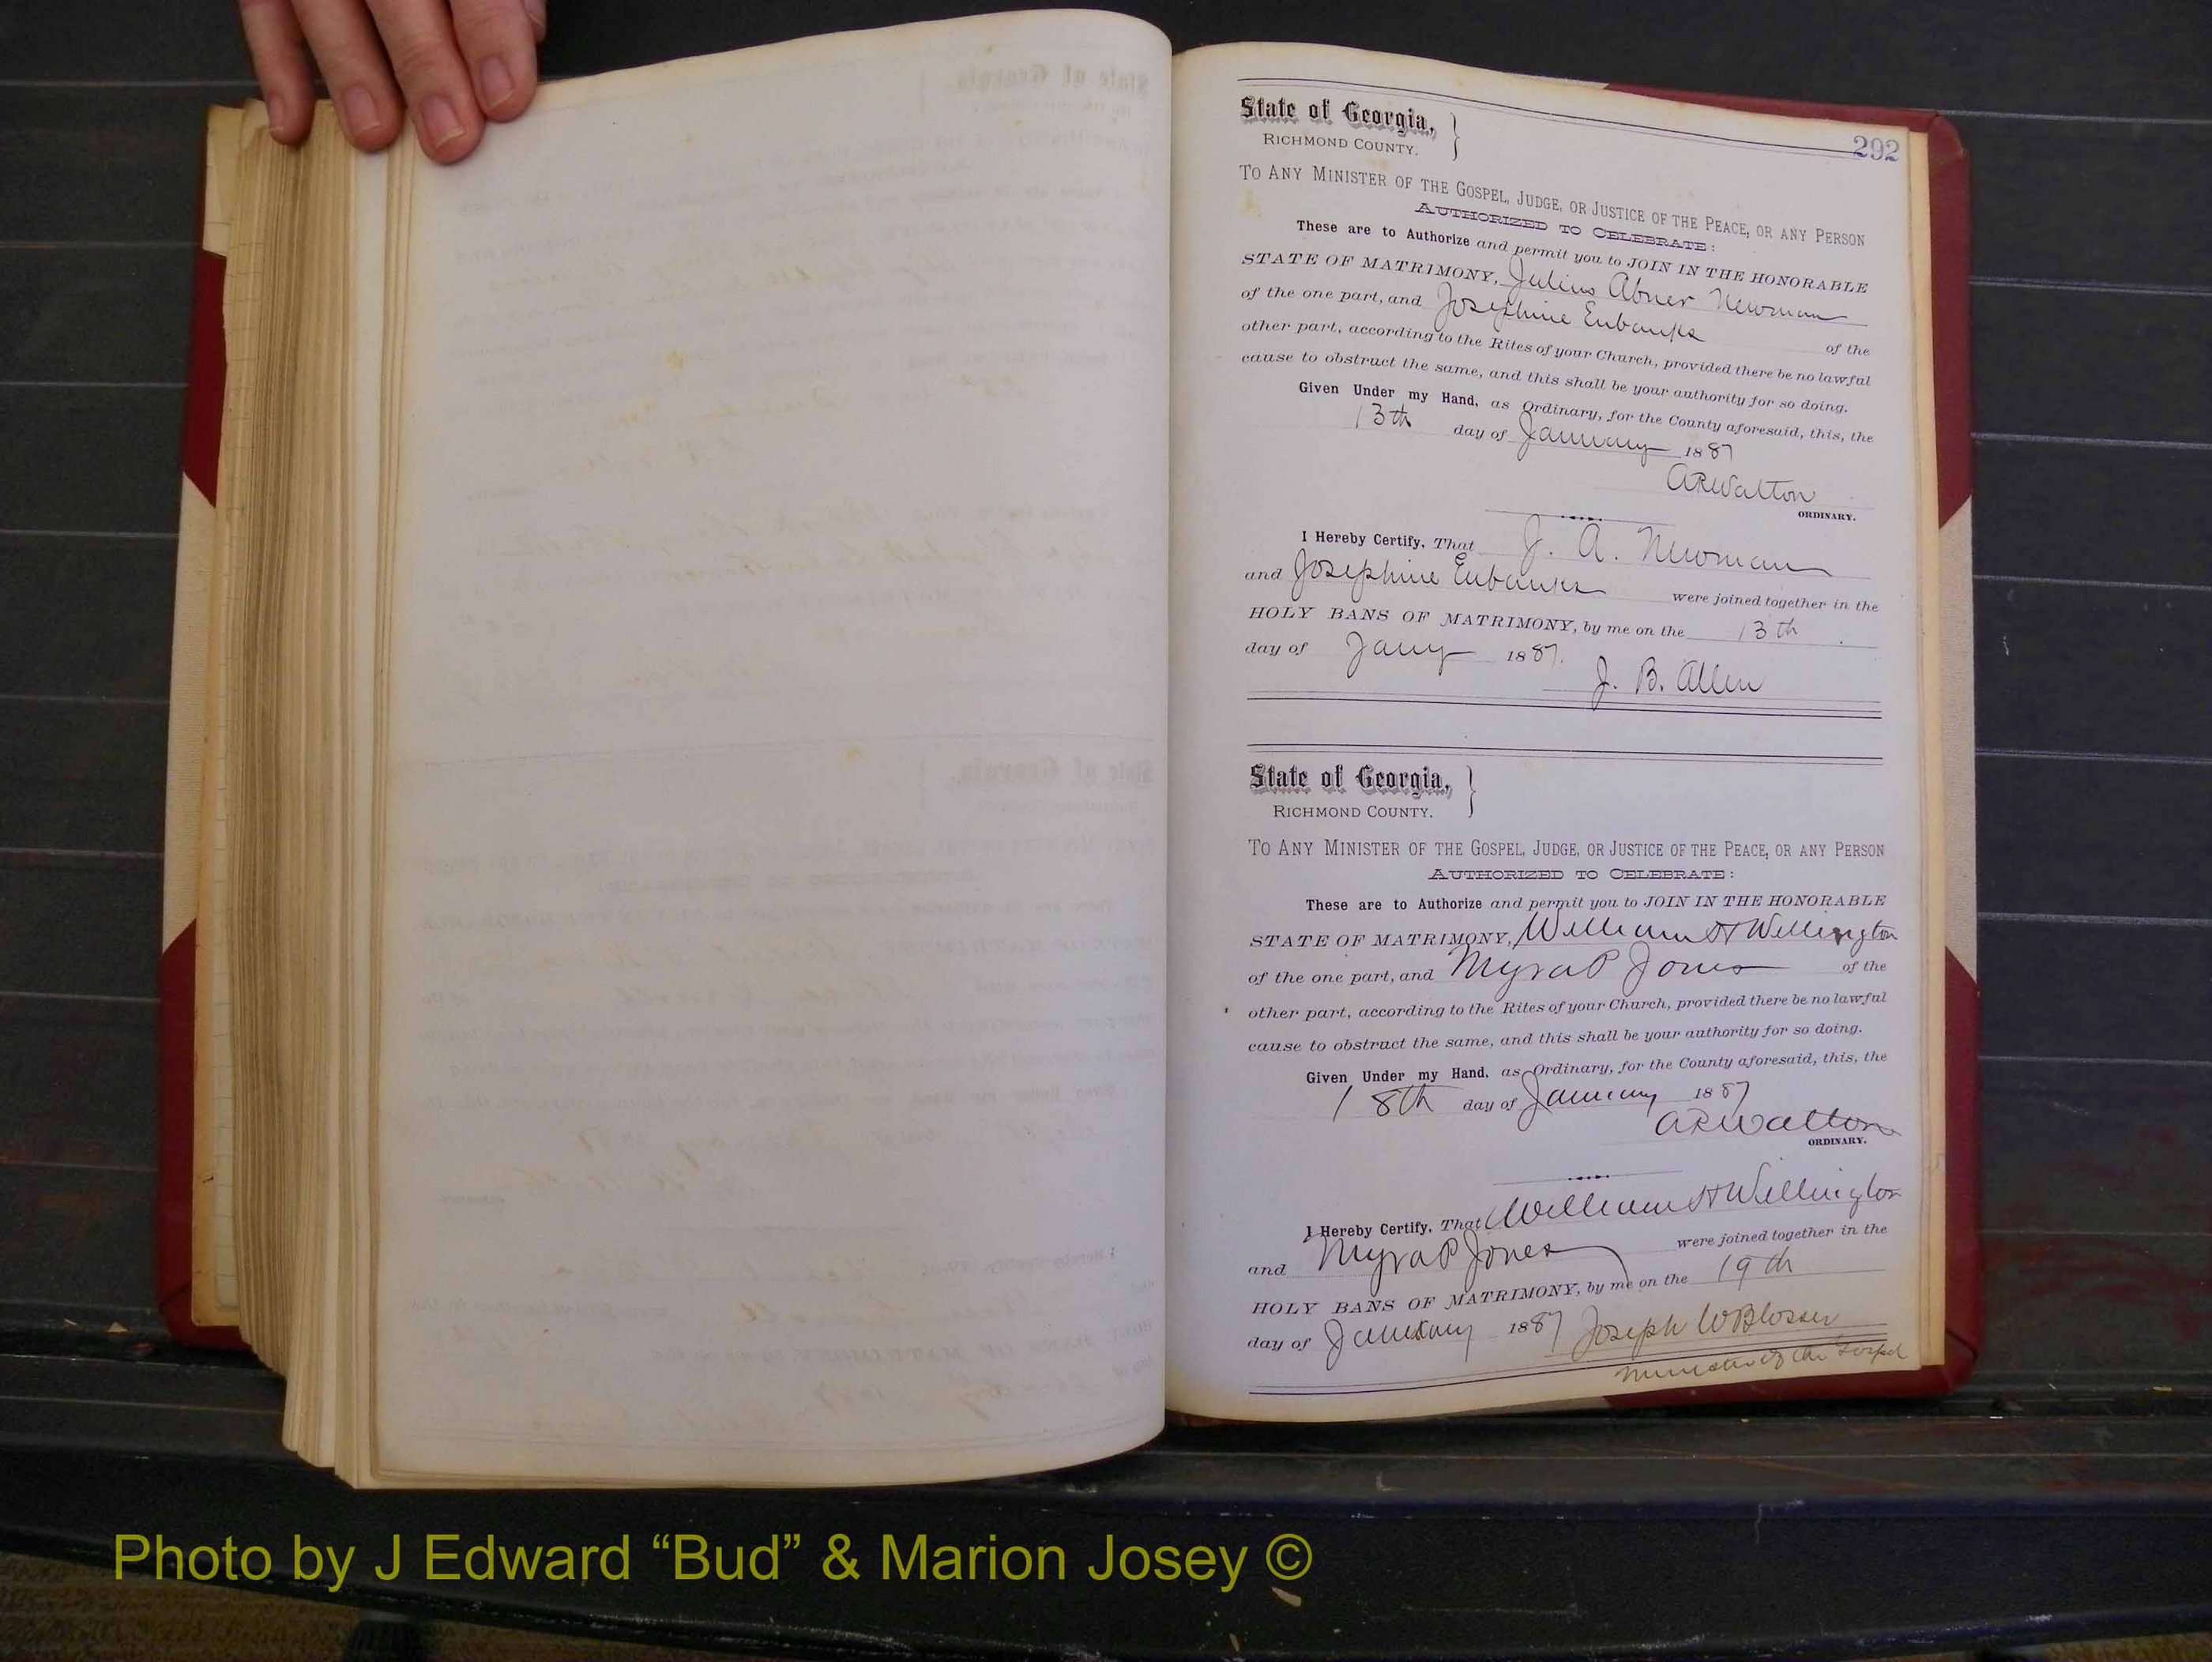 292
State of Georgia,
RICHMOND COUNTY.
TO ANY MINISTER OF THE GOSPEL, JUDGE, OR JUSTICE OF THE PEACE, OR ANY PERSON
AUTHORIZED TO CELEBRATE:
These are to Authorize and permit you to JOIN IN THE HONORABLE
STATE OF MATRIMONY, Julius Abner Newman
of the one part, and Josephine Eubanks of the
other part, according to the Rites of your Church, provided there be no lawful
cause to obstruct the same, and this shall be your authority for so doing.
Given Under my Hand, as Ordinary, for the County aforesaid, this, the
13th day of January 1887
A R Walton
ORDINARY.
I Hereby Certify, That J. A. Newman
and Josephine Eubanks were joined together in the
HOLY BANS OF MATRIMONY, by me on the 13th
day of Jany 1887.
J. B. Allen
State of Georgia,
RICHMOND COUNTY.
TO ANY MINISTER OF THE GOSPEL, JUDGE, OR JUSTICE OF THE PEACE, OR ANY PERSON
AUTHORIZED TO CELEBRATE:
These are to Authorize and permit you to JOIN IN THE HONORABLE
STATE OF MATRIMONY, William H Wellington
of the one part, and Myra P Jones of the
other part, according to the Rites of your Church, provided there be no lawful
cause to obstruct the same, and this shall be your authority for so doing.
Given Under my Hand, as Ordinary, for the County aforesaid, this, the
18th day of January 1887
A R Walton
ORDINARY.
I Hereby Certify, That William H Wellington
and Myra P Jones were joined together in the
HOLY BANS OF MATRIMONY, by me on the 19th
day of January 1887 Joseph W Blosser
Minister of the Gospel
Photo by J Edward “Bud” & Marion Josey ©